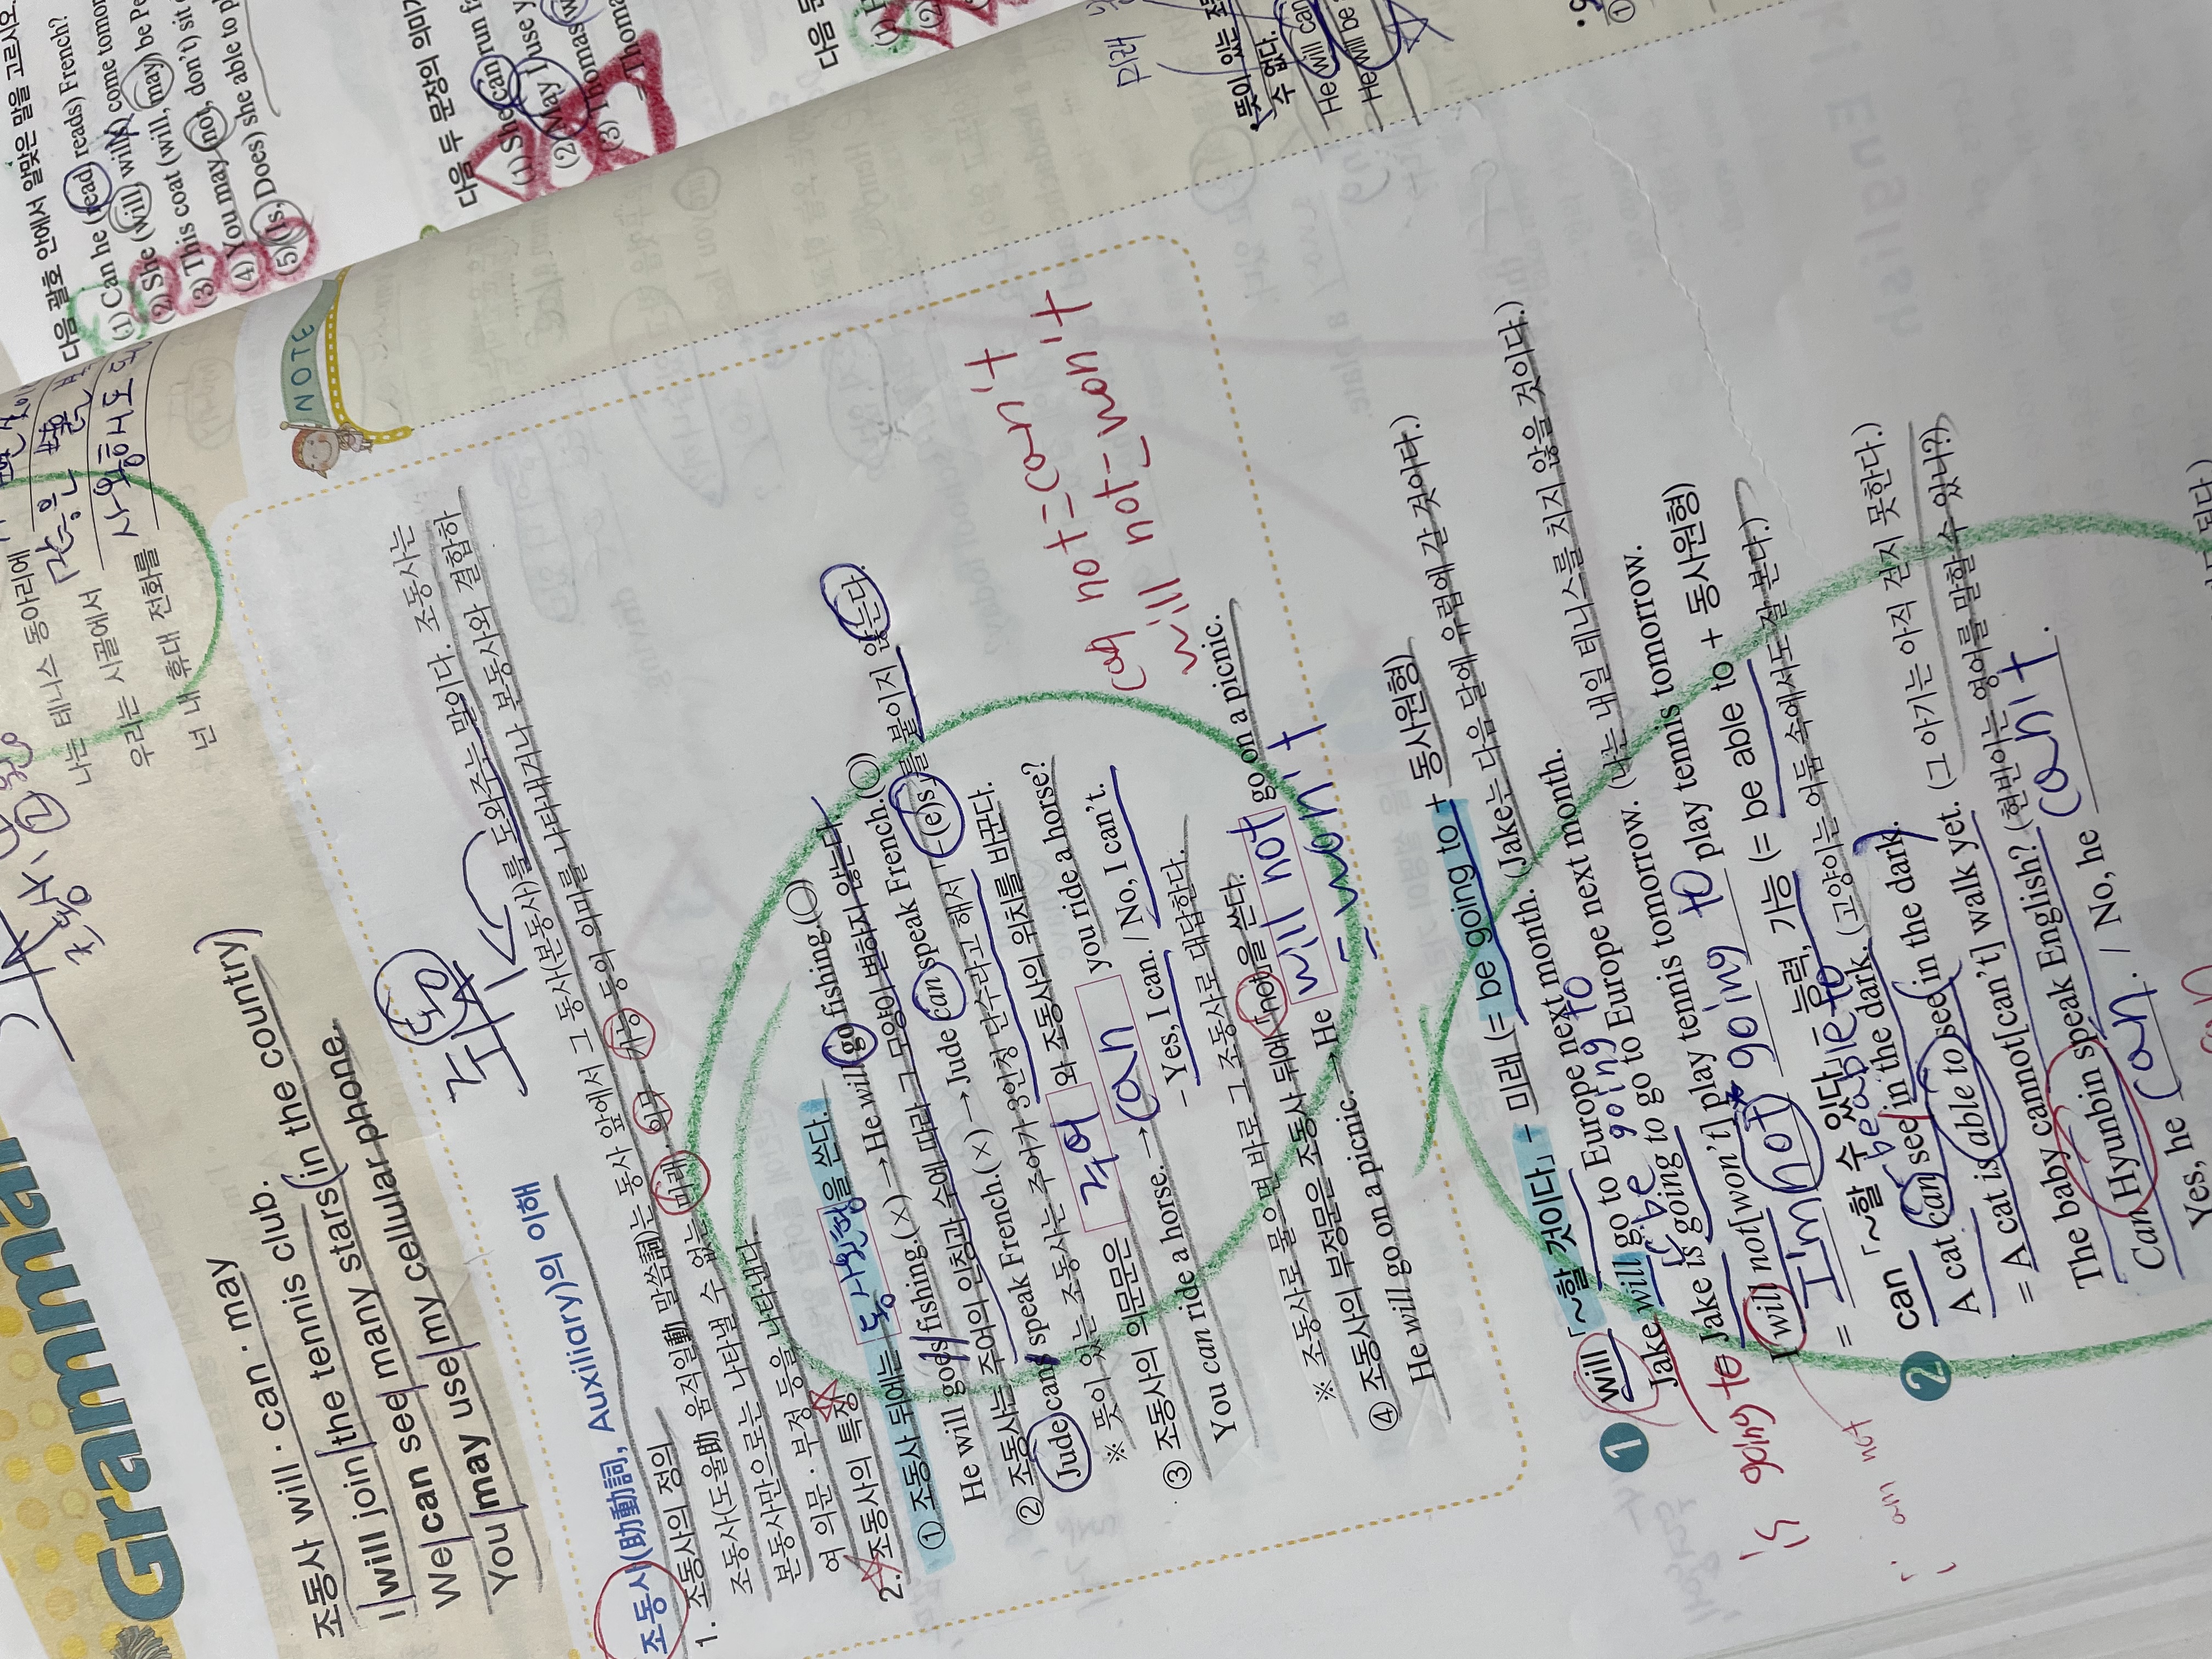 Grammar
조동사 will · can · may
I will join the tennis club.
We can see many stars in the country
You may use my cellular phone.
조동
조동사(助動詞, Auxiliary)의 이해
1. 조동사의 정의
조동사(도울助 움직일動 말씀詞)는 동사 앞에서 그 동사(본동사)를 도와주는 말이다. 조동사는
본동사만으로는 나타낼 수 없는 미래, 의무, 가능 등의 의미를 나타내거나 본동사와 결합하
여 의문 · 부정 등을 나타낸다.
2. 조동사의 특징
① 조동사 뒤에는 동사원형을 쓴다.
He will goes fishing.(×) → He will go fishing.(○)
② 조동사는 주어의 인칭과 수에 따라 그 모양이 변하지 않는다.
Jude cans speak French.(×) → Jude can speak French.(○)
※ 뜻이 있는 조동사는 주어가 3인칭 단수라고 해서 -(e)s를 붙이지 않는다.
③ 조동사의 의문문은 주어 와 조동사의 위치를 바꾼다.
You can ride a horse. → Can you ride a horse?
- Yes, I can. / No, I can't.
※ 조동사로 물으면 바로 그 조동사로 대답한다.
④ 조동사의 부정문은 조동사 뒤에 「not」을 쓴다.
He will go on a picnic. → He will not go on a picnic.
= won't
can not = can't
will not = won't
NOTE
1 will 「~할 것이다」 - 미래 (= be going to + 동사원형)
Jake will go to Europe next month. (Jake는 다음 달에 유럽에 갈 것이다.)
be going to
Jake is going to go to Europe next month.
is going to
I will not[won't] play tennis tomorrow. (나는 내일 테니스를 치지 않을 것이다.)
= I'm not going to play tennis tomorrow.
i am not
2 can 「~할 수 있다」 - 능력, 가능 (= be able to + 동사원형)
be able to
A cat can see in the dark. (고양이는 어둠 속에서도 잘 본다.)
= A cat is able to see in the dark.
The baby cannot[can't] walk yet. (그 아기는 아직 걷지 못한다.)
Can Hyunbin speak English? (현빈이는 영어를 말할 수 있니?)
Yes, he can. / No, he can't.
나는 테니스 동아리에
우리는 시골에서 많은 별
넌 내 휴대 전화를 사용해도
다음 괄호 안에서 알맞은 말을 고르시오.
(1) Can he (read, reads) French?
(2) She (will, wills) come tomor
(3) This coat (will, may) be Pe
(4) You may (not, don't) sit
(5) (Is, Does) she able to p
다음 두 문장의 의미가
(1) She can run fa
(2) May I use y
(3) Thomas w
Thoma
다음 문
(1) H
(2)
미래
뜻이 있는 조동
수 없다.
He will can
He will be